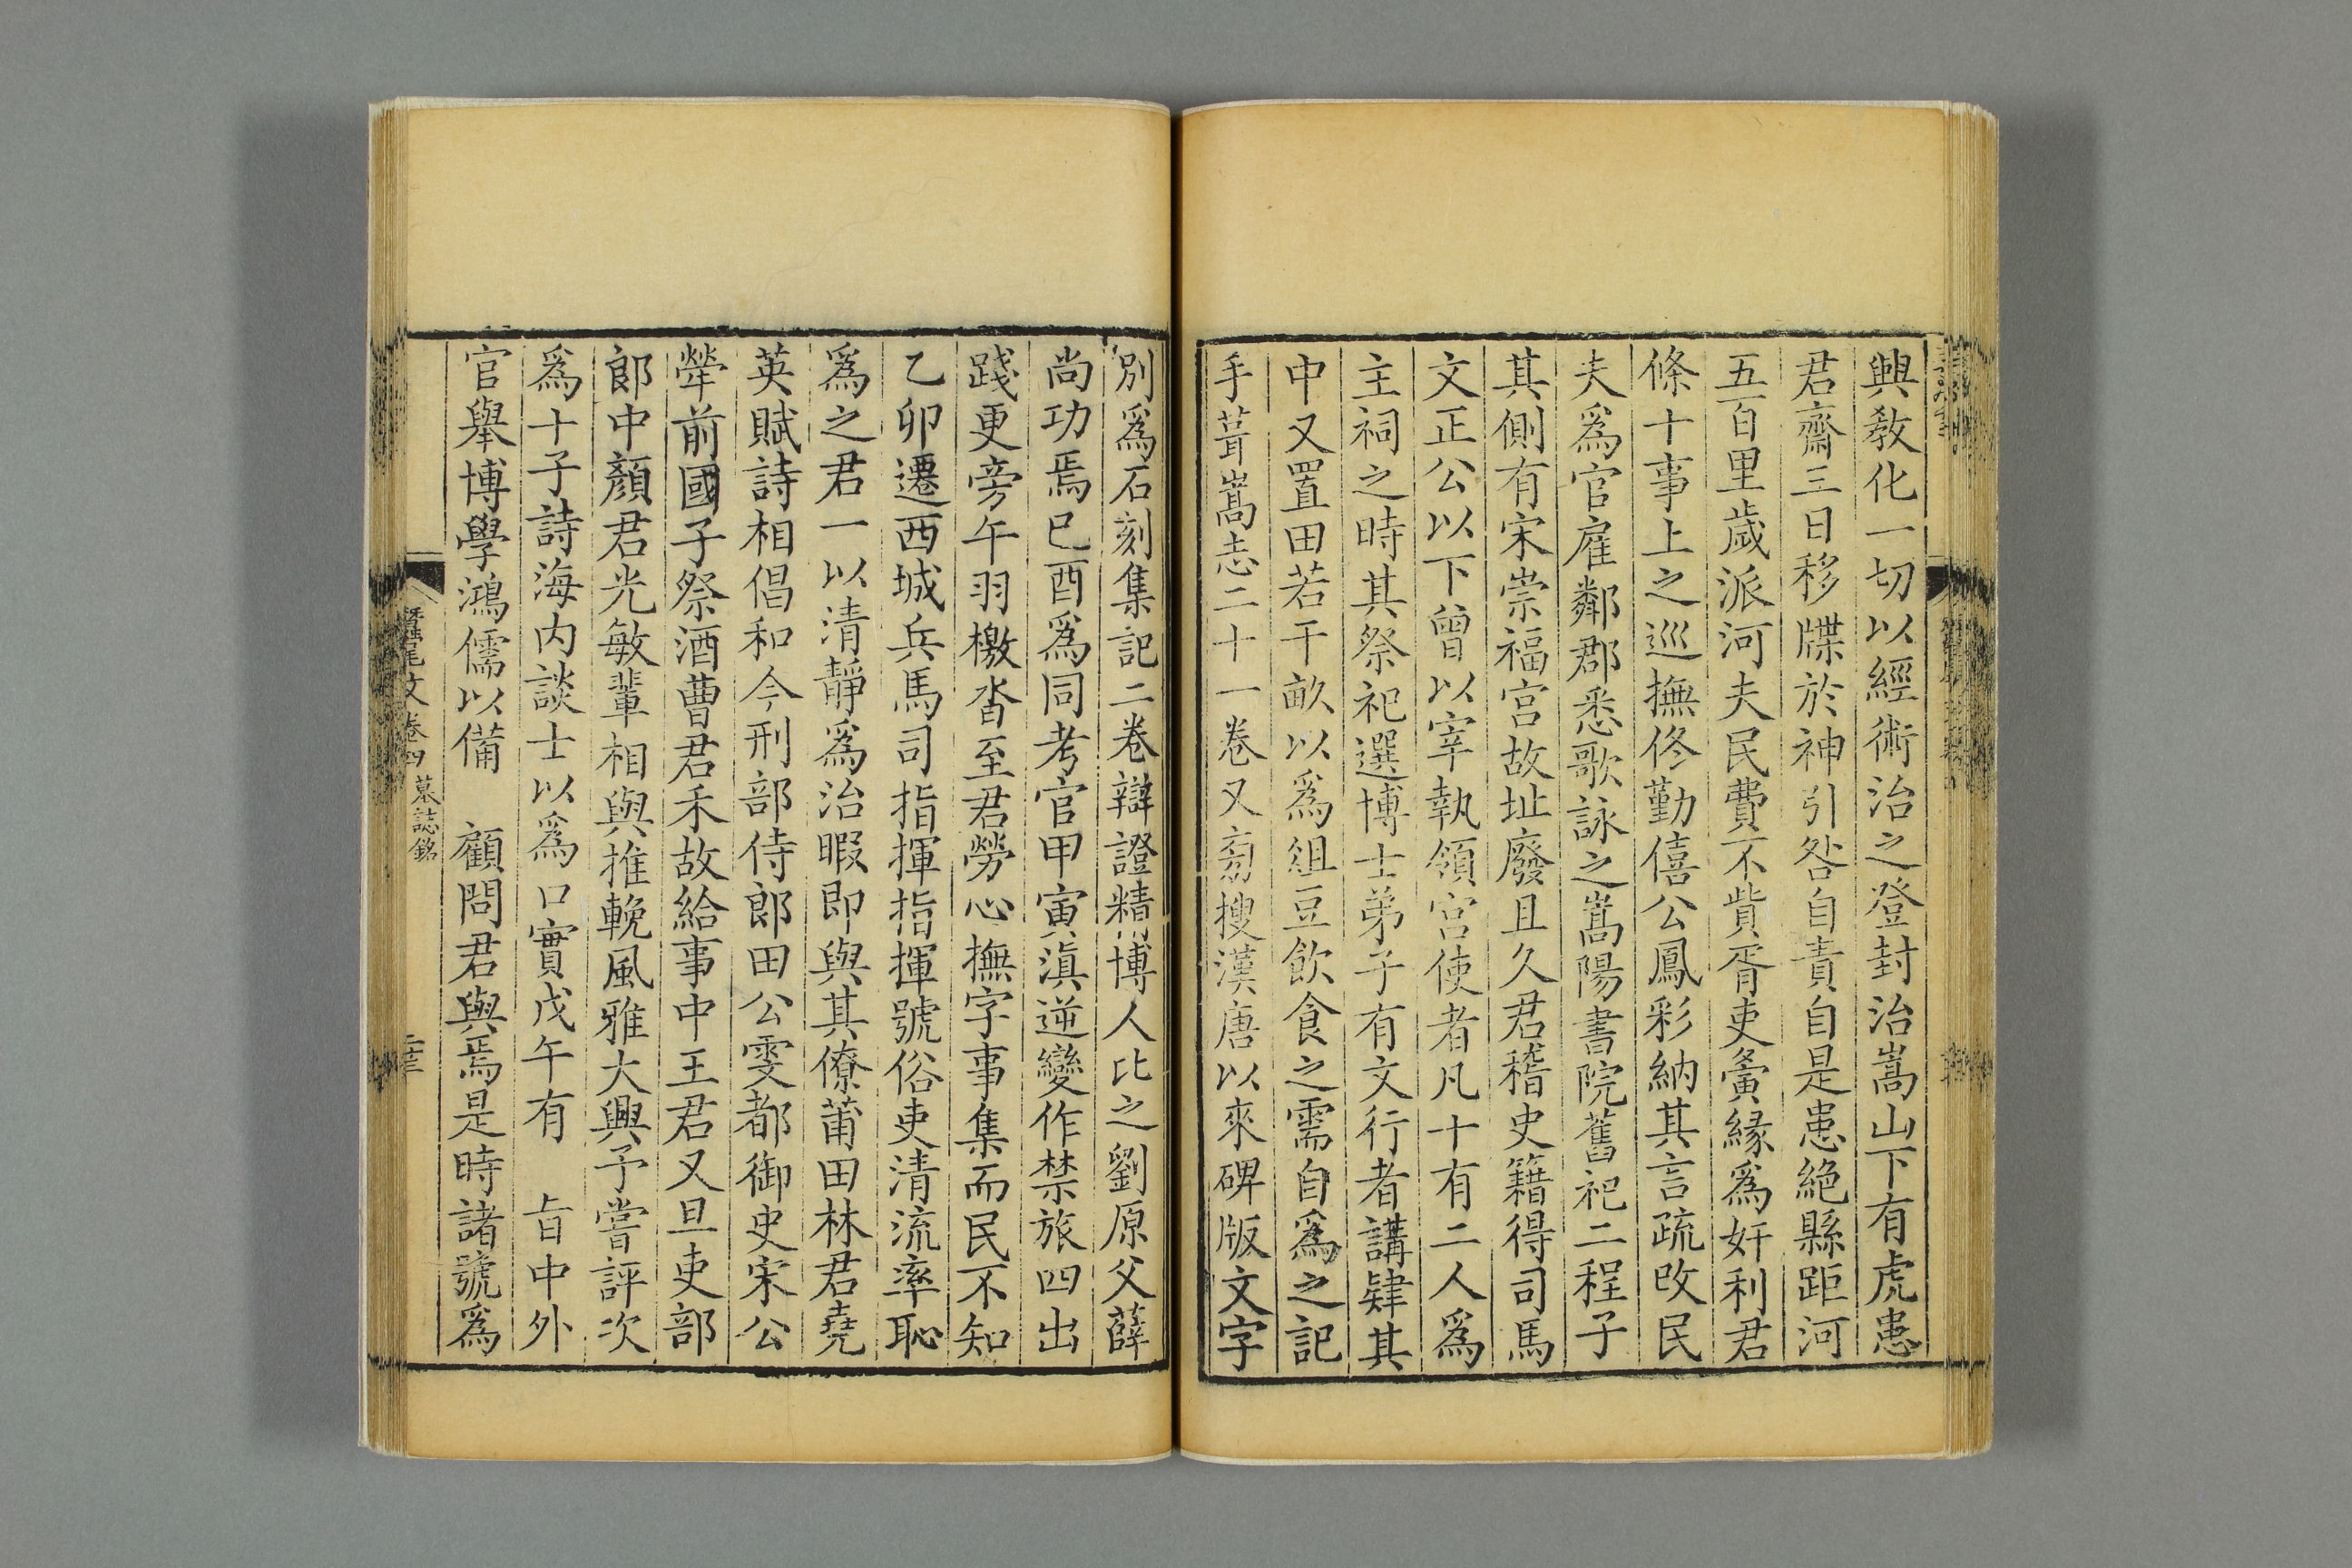 興教化一切以經術治之登封治嵩山下有虎患
君齋三日移牒於神引咎自責自是患絕縣距河
五百里歲派河夫民費不貲胥吏夤緣為奸利君
條十事上之巡撫佟勤僖公鳳彩納其言疏改民
夫爲官雇鄰郡悉歌詠之嵩陽書院舊祀二程子
其側有宋崇福宮故址廢且久君稽史籍得司馬
文正公以下曾以宰執領宮使者凡十有二人爲
主祠之時其祭祀選博士弟子有文行者講肄其
中又置田若干畝以爲俎豆飲食之需自爲之記
手葺嵩志二十一卷又旁搜漢唐以來碑版文字
別爲石刻集記二卷辯證精博人比之劉原父薛
尚功焉己酉爲同考官甲寅滇逆變作禁旅四出
踐更旁午羽檄沓至君勞心撫字事集而民不知
乙卯遷西城兵馬司指揮指揮號俗吏清流率恥
爲之君一以清靜爲治暇即與其僚莆田林君堯
英賦詩相倡和今刑部侍郎田公雯都御史宋公
犖前國子祭酒曹君禾故給事中王君又旦吏部
郎中顏君光敏輩相與推輓風雅大興予嘗評次
爲十子詩海内談士以爲口實戊午有 旨中外
官舉博學鴻儒以備 顧問君與焉是時諸號爲
蠶尾文卷四 墓誌銘